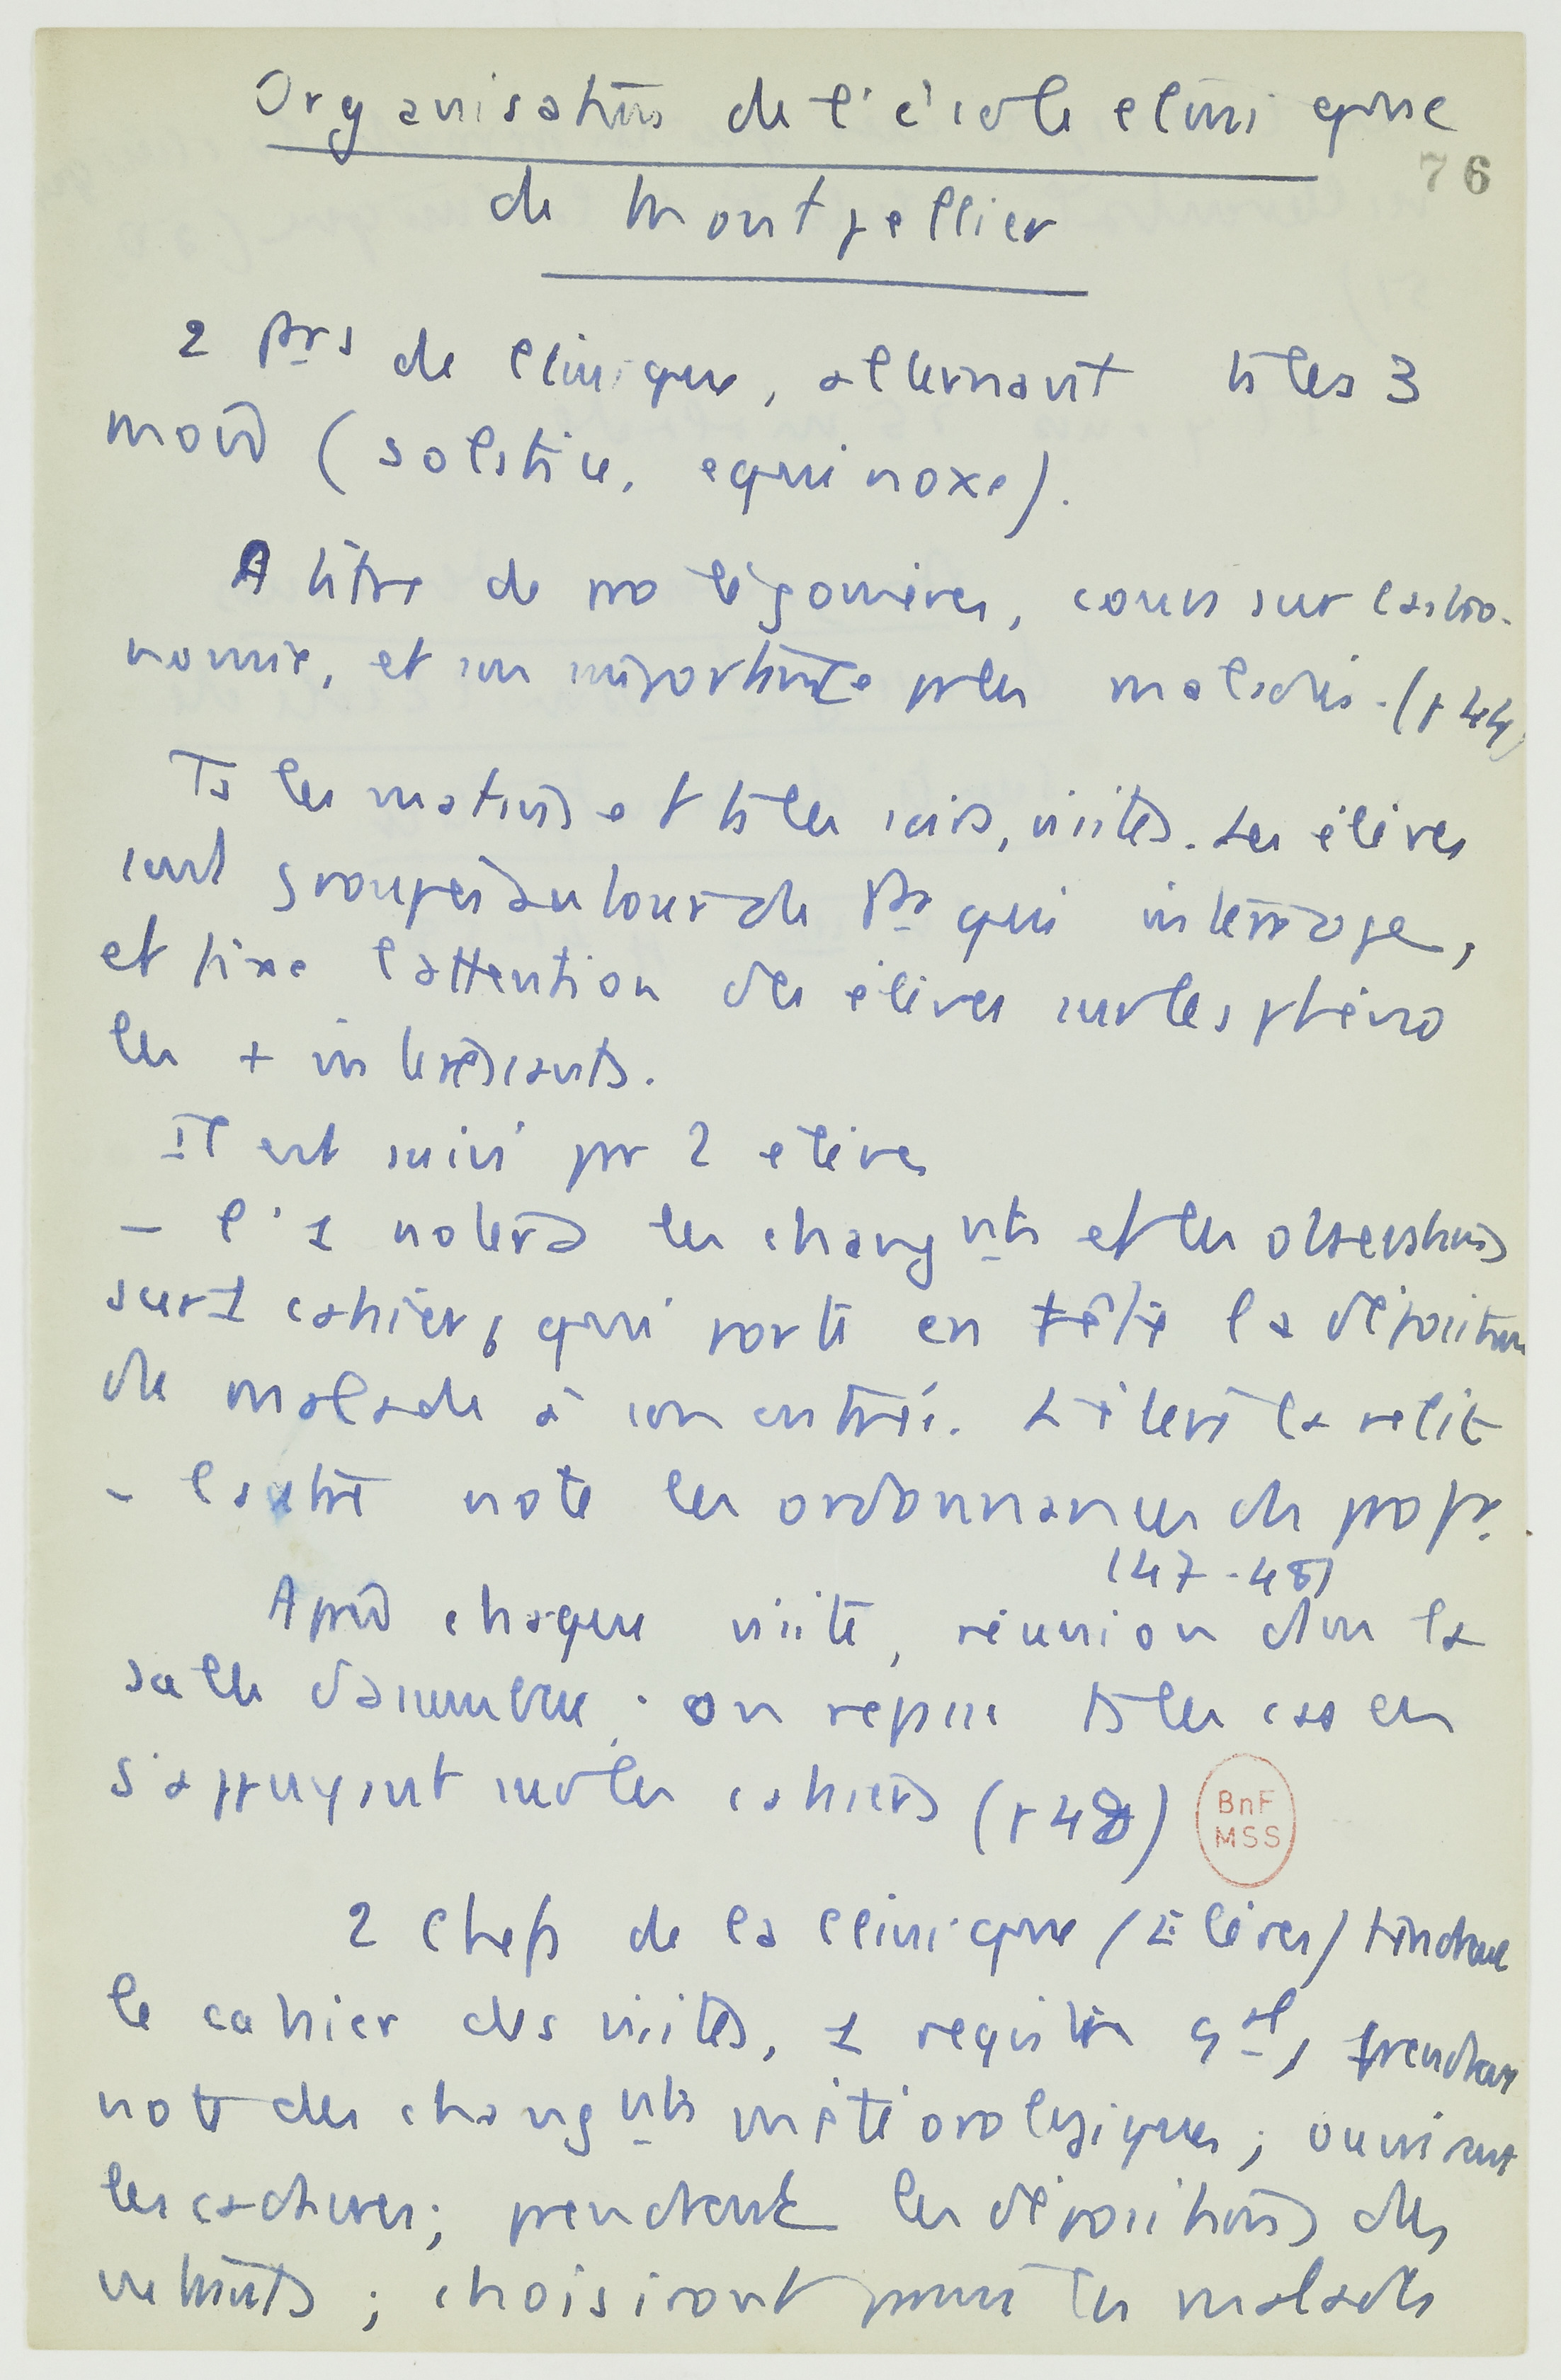 Organisation de l'école clinique
76
de Montpellier
2 prs de clinique, alternant ts les 3
mois (solstice, equinoxe).
A titre de prolégomènes, cours sur l'astro-
nomie, et son importance pr les maladies. (p 44)
Ts les matins et ts les soirs, visites. Les élèves
sont groupés autour du Pr qui interroge,
et fixe l'attention des élèves sur les phéno
les + intéressants.
Il est suivi par 2 elèves
- l'1 notera les changnts et les observations
sur 1 cahier, qui porte en tête la déposition
du malade à son entrée. L'élève la relit
- l'autre note les ordonnances du profr.
(47-48)
Après chaque visite, réunion dans la
salle d'assemblée ; on repasse ts les cas en
s'appuyant sur les cahiers (p 48)
BnF
MSS
2 chefs de la clinique (Elèves) tiendront
le cahier des visites, 1 registre gal, prendront
note des changnts météorologiques ;
les cadavres ; prendront les dépositions des
; choisiront parmi les malades